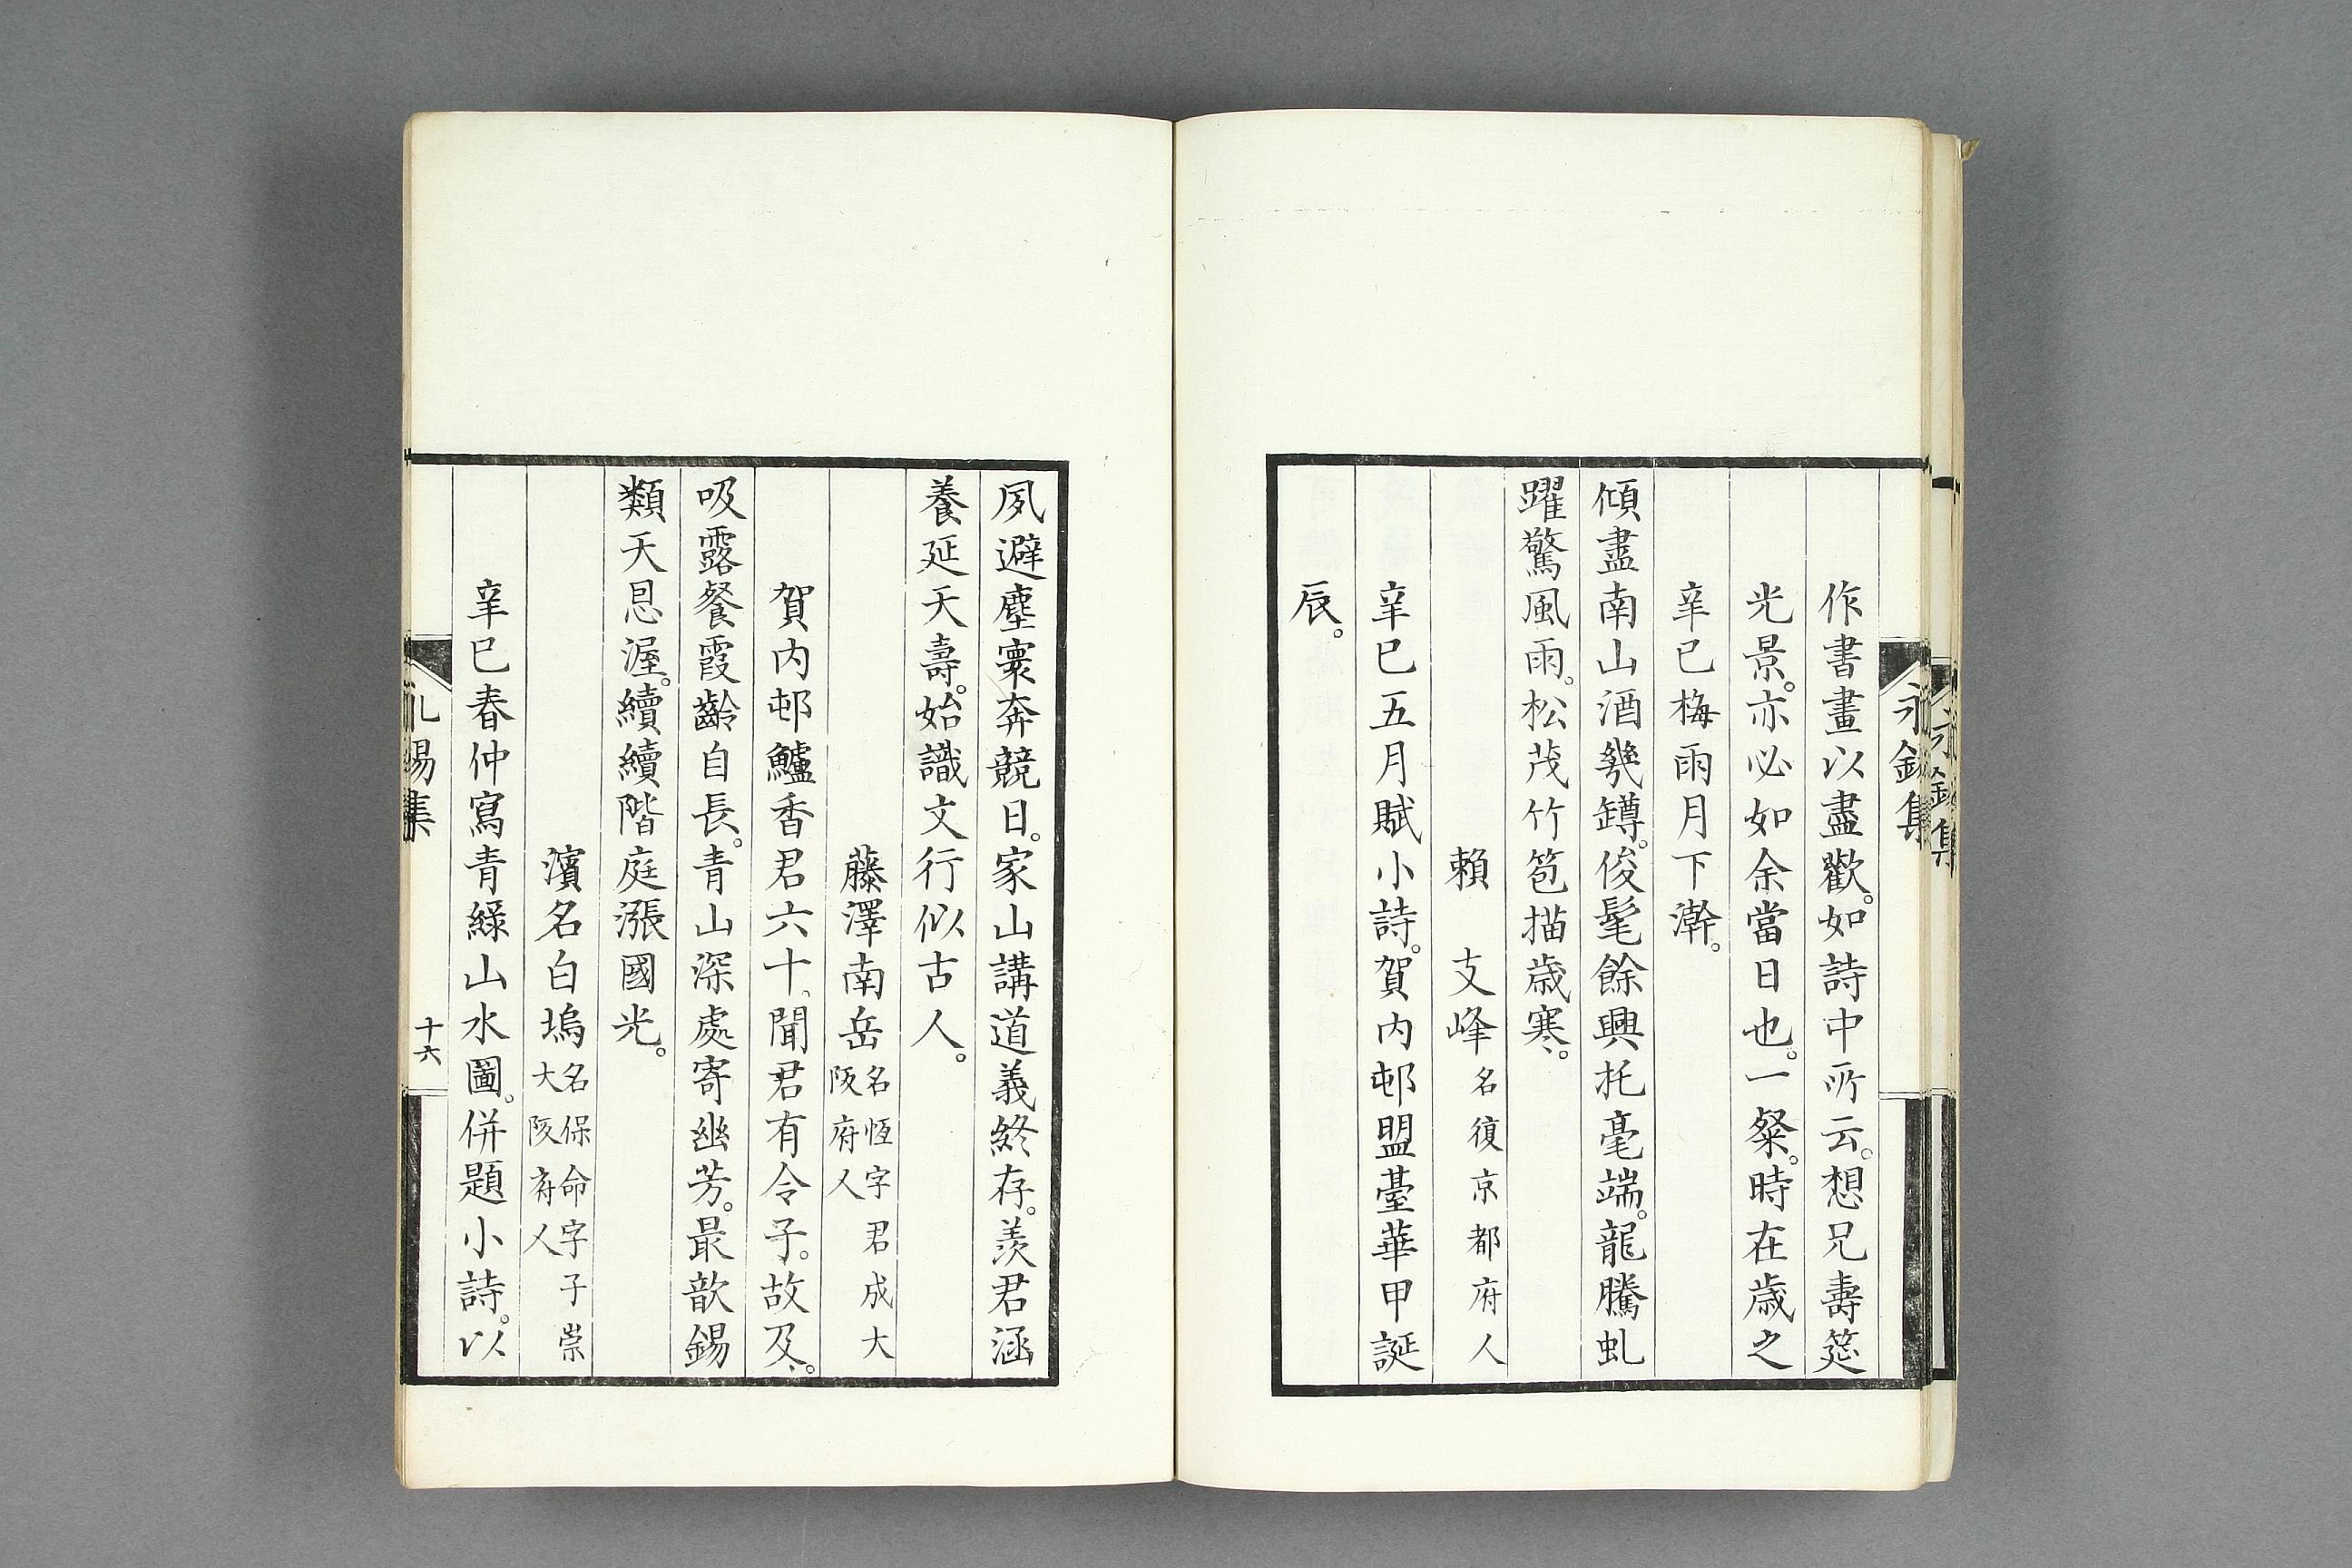 作書畫以盡歡。如詩中所云。想兄壽筵
光景。亦必如余當日也。一粲。時在歳之
辛巳梅雨月下澣。
傾盡南山酒幾罇。俊髦餘興托毫端。龍騰虬
躍驚風雨。松茂竹苞描歳寒。
賴 支峰 名復京都府人
辛巳五月賦小詩。賀内邨盟臺華甲誕
辰。
夙避塵寰奔競日。家山講道義終存。羨君涵
養延天壽。始識文行似古人。
藤澤南岳 名恆字君成大阪府人
賀内邨鱸香君六十、聞君有令子。故及、。
吸露餐霞齡自長。青山深處寄幽芳。最歆錫
類天恩渥。續續階庭漲國光。
濱名白塢 名保命字子崇大阪府人
辛巳春仲寫青綠山水圖。併題小詩。以
永錫集
十六